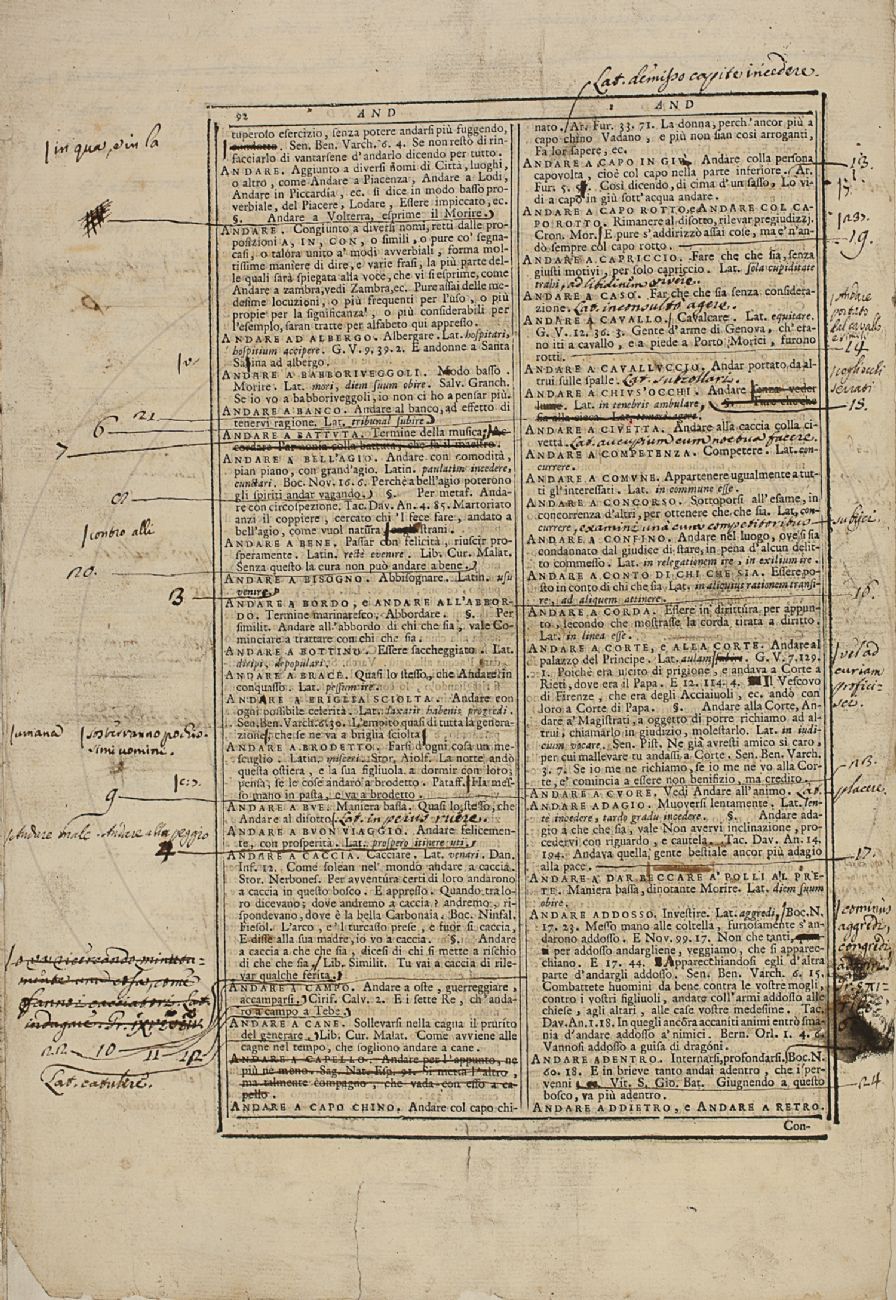 Lat. demisso capite incedere.
92 AND
tuperoso esercizio, senza potere andarsi più fuggendo,
Sen. Ben. Varch. 6. 4. Se non resto di rin-
facciarlo di vantarsene d'andarlo dicendo per tutto.
ANDARE. Aggiunto a diversi nomi di Città, luoghi,
o altro, come Andare a Piacenza, Andare a Lodi,
Andare in Piccardia, ec. si dice in modo basso pro-
verbiale, del Piacere, Lodare, Essere impiccato, ec.
§. Andare a Volterra, esprime il Morire.
ANDARE. Congiunto a diversi nomi, retti dalle pro-
posizioni A, IN, CON, o simili, o pure co' segna-
casi, o talora unito a' modi avverbiali, forma mol-
tissime maniere di dire, e varie frasi, la più parte del-
le quali sarà spiegata alla voce, che vi si esprime, come
Andare a zambra, vedi Zambra, ec. Pure assai delle me-
desime locuzioni, o più frequenti per l'uso, o più
propie per la significanza, o più considerabili per
l'esemplo, saran tratte per alfabeto qui appresso.
ANDARE AD ALBERGO. Albergare. Lat. hospitari,
hospitium accipere. G. V. 9. 39. 2. E andonne a Santa
Sabina ad albergo.
ANDARE A BABBORIVEGGOLI. Modo basso.
Morire. Lat. mori, diem suum obire. Salv. Granch.
Se io vo a babboriveggoli, io non ci ho a pensar più.
ANDARE A BANCO. Andare al banco, ad effetto di
tenervi ragione. Lat. tribunal subire.
ANDARE A BATTUTA. Termine della musica. Ac-
cordare l'armonia colla battuta, che fa il maestro.
ANDARE A BELL'AGIO. Andare con comodità,
pian piano, con grand'agio. Latin. paulatim incedere,
cunctari. Boc. Nov. 16. 6. Perchè a bell'agio poterono
gli spiriti andar vagando. §. Per metaf. Anda-
re con circospezione. Tac. Dav. An. 4. 85. Martoriato
anzi il coppiere, cercato chi 'l fece fare, andato a
bell'agio, come vuol natura, strani.
ANDARE A BENE. Passar con felicità, riuscir pro-
speramente. Latin. recte evenire. Lib. Cur. Malat.
Senza questo la cura non può andare a bene.
ANDARE A BISOGNO. Abbisognare. Latin. usu
venire.
ANDARE A BORDO, e ANDARE ALL'ABBOR-
DO. Termine marinaresco. Abbordare. §. Per
similit. Andare all'abbordo di chi che sia, vale Co-
minciare a trattare con chi che sia.
ANDARE A BOTTINO. Essere saccheggiato. Lat.
diripi, depopulari.
ANDARE A BRACE. Quasi lo stesso, che Andare in
conquasso. Lat. pessum ire.
ANDARE A BRIGLIA SCIOLTA. Andare con
ogni possibile celerità. Lat. laxatis habenis progredi.
Sen. Ben. Varch. 6. 30. L'empito quasi di tutta la genera-
zione, che se ne va a briglia sciolta
ANDARE A BRODETTO. Farsi d'ogni cosa un me-
scuglio. Latin. misceri. Stor. Aiolf. La notte andò
questa ostiera, e la sua figliuola a dormir con loro;
pensa, se le cose andaro a brodetto. Pataff. Ha mes-
so mano in pasta, e va a brodetto.
ANDARE A BUE. Maniera bassa. Quasi lo stesso, che
Andare al disotto. Lat. in peius ruere.
ANDARE A BUON VIAGGIO. Andare felicemen-
te, con prosperità. Lat. prospero itinere uti.
ANDARE A CACCIA. Cacciare. Lat. venari. Dan.
Inf. 12. Come solean nel mondo andare a caccia.
Stor. Nerbones. Per avventura certi di loro andarono
a caccia in questo bosco. E appresso. Quando tra lo-
ro dicevano; dove andremo a caccia? andremo, ri-
spondevano, dove è la bella Carbonaia. Boc. Ninfal.
Fiesol. L'arco, e 'l turcasso prese, e fuor si caccia,
E disse alla sua madre, io vo a caccia. §. Andare
a caccia a che che sia, dicesi di chi si mette a rischio
di che che sia. Lib. Similit. Tu vai a caccia di rile-
var qualche ferita.
ANDARE A CAMPO. Andare a oste, guerreggiare,
accamparsi. Cirif. Calv. 2. E i sette Re, ch'anda-
ro a campo a Tebe
ANDARE A CANE. Sollevarsi nella cagna il prurito
del generare. Lib. Cur. Malat. Come avviene alle
cagne nel tempo, che sogliono andare a cane.
ANDARE A CAPELLO. Andare per l'appunto, nè
più nè meno. Sag. Nat. Esp. 91. Si metta l'altro,
ma talmente compagno, che vada con esso a ca-
pello.
ANDARE A CAPO CHINO. Andare col capo chi-
AND
nato. Ar. Fur. 33. 71. La donna, perch'ancor più a
capo chino Vadano, e più non sian così arroganti,
Fa lor sapere, ec.
ANDARE A CAPO IN GIU. Andare colla persona
capovolta, cioè col capo nella parte inferiore. Ar.
Fur. 5. Così dicendo, di cima d'un sasso, Lo vi-
di a capo in giù sott'acqua andare.
ANDARE A CAPO ROTTO, e ANDARE COL CA-
PO ROTTO. Rimanere al disotto, rilevar pregiudizj.
Cron. Mor. E pure s'addirizzò assai cose, ma e' n'an-
dò sempre col capo rotto.
ANDARE A CAPRICCIO. Fare che che sia, senza
giusti motivi, per solo capriccio. Lat. sola cupiditate
trahi, ad libidinem vivere.
ANDARE A CASO. Far che che sia senza considera-
zione. Lat. inconsulto agere.
ANDARE A CAVALLO. Cavalcare. Lat. equitare.
G. V. 12. 36. 3. Gente d'arme di Genova, ch'era-
no iti a cavallo, e a piede a Porto Morici, furono
rotti.
ANDARE A CAVALLUCCIO. Andar portato da al-
trui sulle spalle. Lat. succollari.
ANDARE A CHIUS'OCCHI. Andare senza veder
lume. Lat. in tenebris ambulare.
ANDARE A CIVETTA. Andare alla caccia colla ci-
vetta. Lat. aucupium cum noctua facere.
ANDARE A COMPETENZA. Competere. Lat. con-
currere.
ANDARE A COMUNE. Appartenere ugualmente a tut-
ti gl'interessati. Lat. in commune esse.
ANDARE A CONCORSO. Sottoporsi all'esame, in
concorrenza d'altri, per ottenere che che sia. Lat. con-
currere, examini una cum competitoribus subijci.
ANDARE A CONFINO. Andare nel luogo, ove si sia
condannato dal giudice di stare, in pena d'alcun delit-
to commesso. Lat. in relegationem ire, in exilium ire.
ANDARE A CONTO DI CHI CHE SIA. Essere po-
sto in conto di chi che sia Lat. in alicujus rationem transi-
re, ad aliquem attinere.
ANDARE A CORDA. Essere in dirittura per appun-
to, secondo che mostrasse la corda tirata a diritto.
Lat. in linea esse.
ANDARE A CORTE, e ALLA CORTE. Andare al
palazzo del Principe. Lat. aulam G. V. 7. 129.
1. Poichè era uscito di prigione, e andava a Corte a
Rieti, dove era il Papa. E 12. 114. 4. Il Vescovo
di Firenze, che era degli Acciaiuoli, ec. andò con
loro a Corte di Papa. §. Andare alla Corte, An-
dare a' Magistrati, a oggetto di poter richiamo ad al-
trui, chiamarlo in giudizio, molestarlo. Lat. in iudi-
cium vocare. Sen. Pist. Ne già avresti amico si caro,
per cui mallevare tu andassi a Corte. Sen. Ben. Varch.
3. 7. Se io me ne richiamo, se io me ne vo alla Cor-
te, e' comincia a essere non benifizio, ma credito.
ANDARE A CUORE. Vedi Andare all'animo. Lat. placere.
ANDARE ADAGIO. Muoversi lentamente. Lat. len-
te incedere, tardo gradu incedere. §. Andare ada-
gio a che che sia, vale Non avervi inclinazione, pro-
cedervi con riguardo, e cautela. Tac. Dav. An. 14.
194. Andava quella gente bestiale ancor più adagio
alla pace.
ANDARE A DAR BECCARE A' POLLI AL PRE-
TE. Maniera bassa, dinotante Morire. Lat. diem suum
obire.
ANDARE ADDOSSO. Investire. Lat. aggredi, Boc. N.
17. 23. Messo mano alle coltella, furiosamente s'an-
darono addosso. E Nov. 99. 17. Non che tanti,
per addosso andargliene, veggiamo, che si apparec-
chiano. E 17. 44. Apparecchiandosi egli d'altra
parte d'andargli addosso. Sen. Ben. Varch. 6. 15.
Combattete huomini da bene contra le vostre mogli,
contro i vostri figliuoli, andate coll'armi addosso alle
chiese, agli altari, alle case vostre medesime. Tac.
Dav. An. 1. 18. In quegli ancóra accaniti animi entrò sma-
nia d'andare addosso a' nimici. Bern. Orl. 1. 4. 6.
Vannosi addosso a guisa di dragóni.
ANDARE ADENTRO. Internarsi, profondarsi. Boc. N.
60. 18. E in brieve tanto andai adentro, che i per-
venni, ec. Vit. S. Gio. Bat. Giugnendo a questo
bosco, va più adentro.
ANDARE ADDIETRO, e ANDARE A RETRO.
Con-
in qua, e in la
6 21
7
contro alli
20.
3
umana
9
Andare male. Andare alla peggio
4
22 10 11 12
Lat. catulire.
13.
19.
Andare
portato
14
15.
subijci.
16.
vel ad
curiam
profici-
sci.
17.
cominus
aggredi,
congredi
24